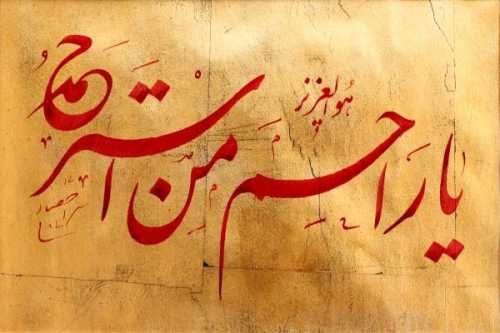 هوالعزیز
یا راحم من استرحمه